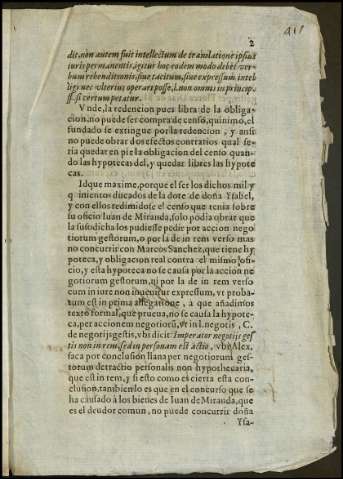 2
dit, non autem fuit intellectum de translatione ipsius
iuris permanentis, igitur hoc eodem modo debet ver-
bum redenditionis, siue tacitum, siue expressum intel
ligi nec vlterius operari posse, l. non omnis in princip.
ff. si certum petatur.
Vnde, la redencion pues libra de la obliga-
cion, no puede ser compra de censo, quinimo, el
fundado se extingue por la redencion, y ansi
no puede obrar dos efectos contrarios qual se-
ria quedar en pie la obligacion del censo quan-
do las hypotecas del, y quedar libres las hypote
cas.
Idque maxime, porque el ser los dichos mil y
quinientos ducados de la dote de doña Ysabel,
y con ellos redimidose el censo que tenia sobre
su oficio Iuan de Miranda, solo podia obrar que
la susodicha los pudiesse pedir por accion nego
tiorum gestorum, o por la de in rem verso mas
no concurrir con Marcos Sanchez, que tiene hy
poteca, y obligacion real contra el mismo ofi-
cio, y esta hypoteca no se causa por la accion ne
gotiorum gestorum, ni por la de in rem verso
cum in iure non inueniatur expressum, vt proba-
tum est in prima allegatione, a que añadimos
texto formal, que prueua, no se causa la hypote
ca, per accionem negotiorũ, vt in l. negotis, C.
de negotijs gestis, vbi dicit Imperator negotijs ges
tis non in rem sed in personam est actio, vbi Alex.
saca por conclusion llana per negotiorum ges-
torum detractio personalis non hypothecaria,
que est in rem, y si esto es cierta esta con
clusion, tambien lo es que en el concurso que se
ha causado à los bienes de Iuan de Miranda, que
es el deudor comun, no puede concurrir doña
Ysa-